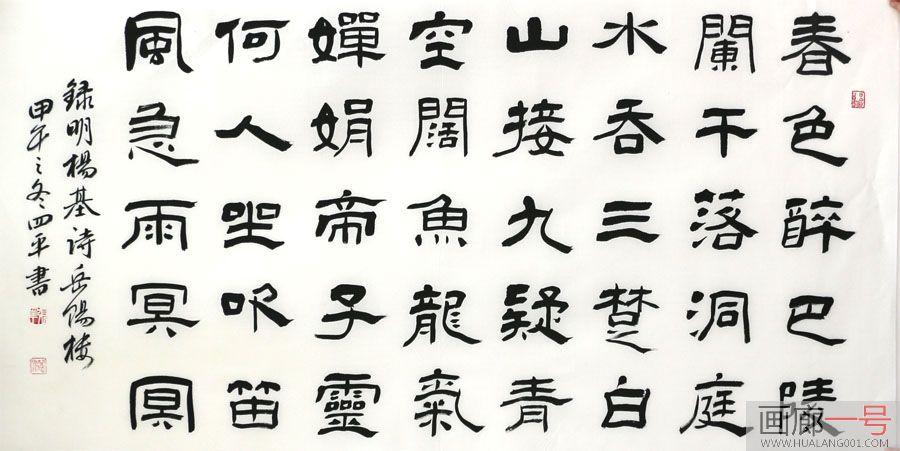 春色醉巴陵
闌干落洞庭
水吞三楚白
山接九疑青
空闊魚龍氣
嬋娟帝子靈
何人坐吹笛
風急雨冥冥
録明楊基詩岳陽樓
甲午之冬四平書
画廊一号
WWW.HUALANG001.COM